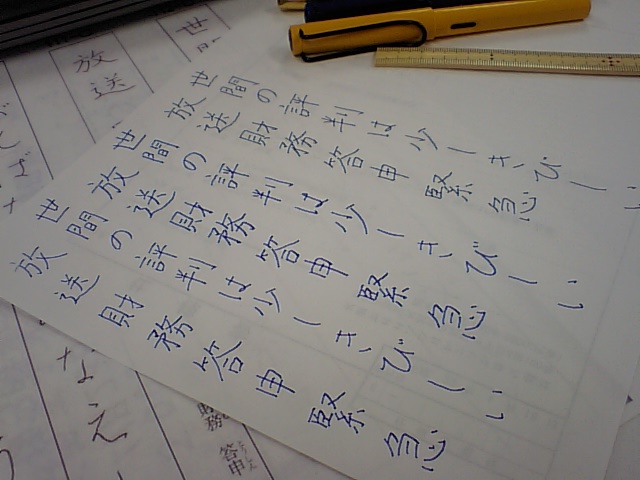 世間の評判は少しきびしい
放送財務答申緊急
世間の評判は少しきびしい
放送財務答申緊急
世間の評判は少しきびしい
放送財務答申緊急
世
放送
なえ
財務
答申